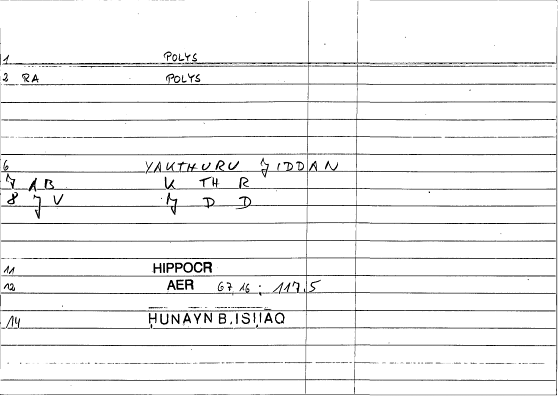 1 POLYS
2 RA POLYS
6 YAKTHURU JIDDAN
7 AB K TH R
8 JV J D D
11 HIPPOCR
12 AER 67,16 ; 117.5
14 ḤUNAYN B. ISḤĀQ